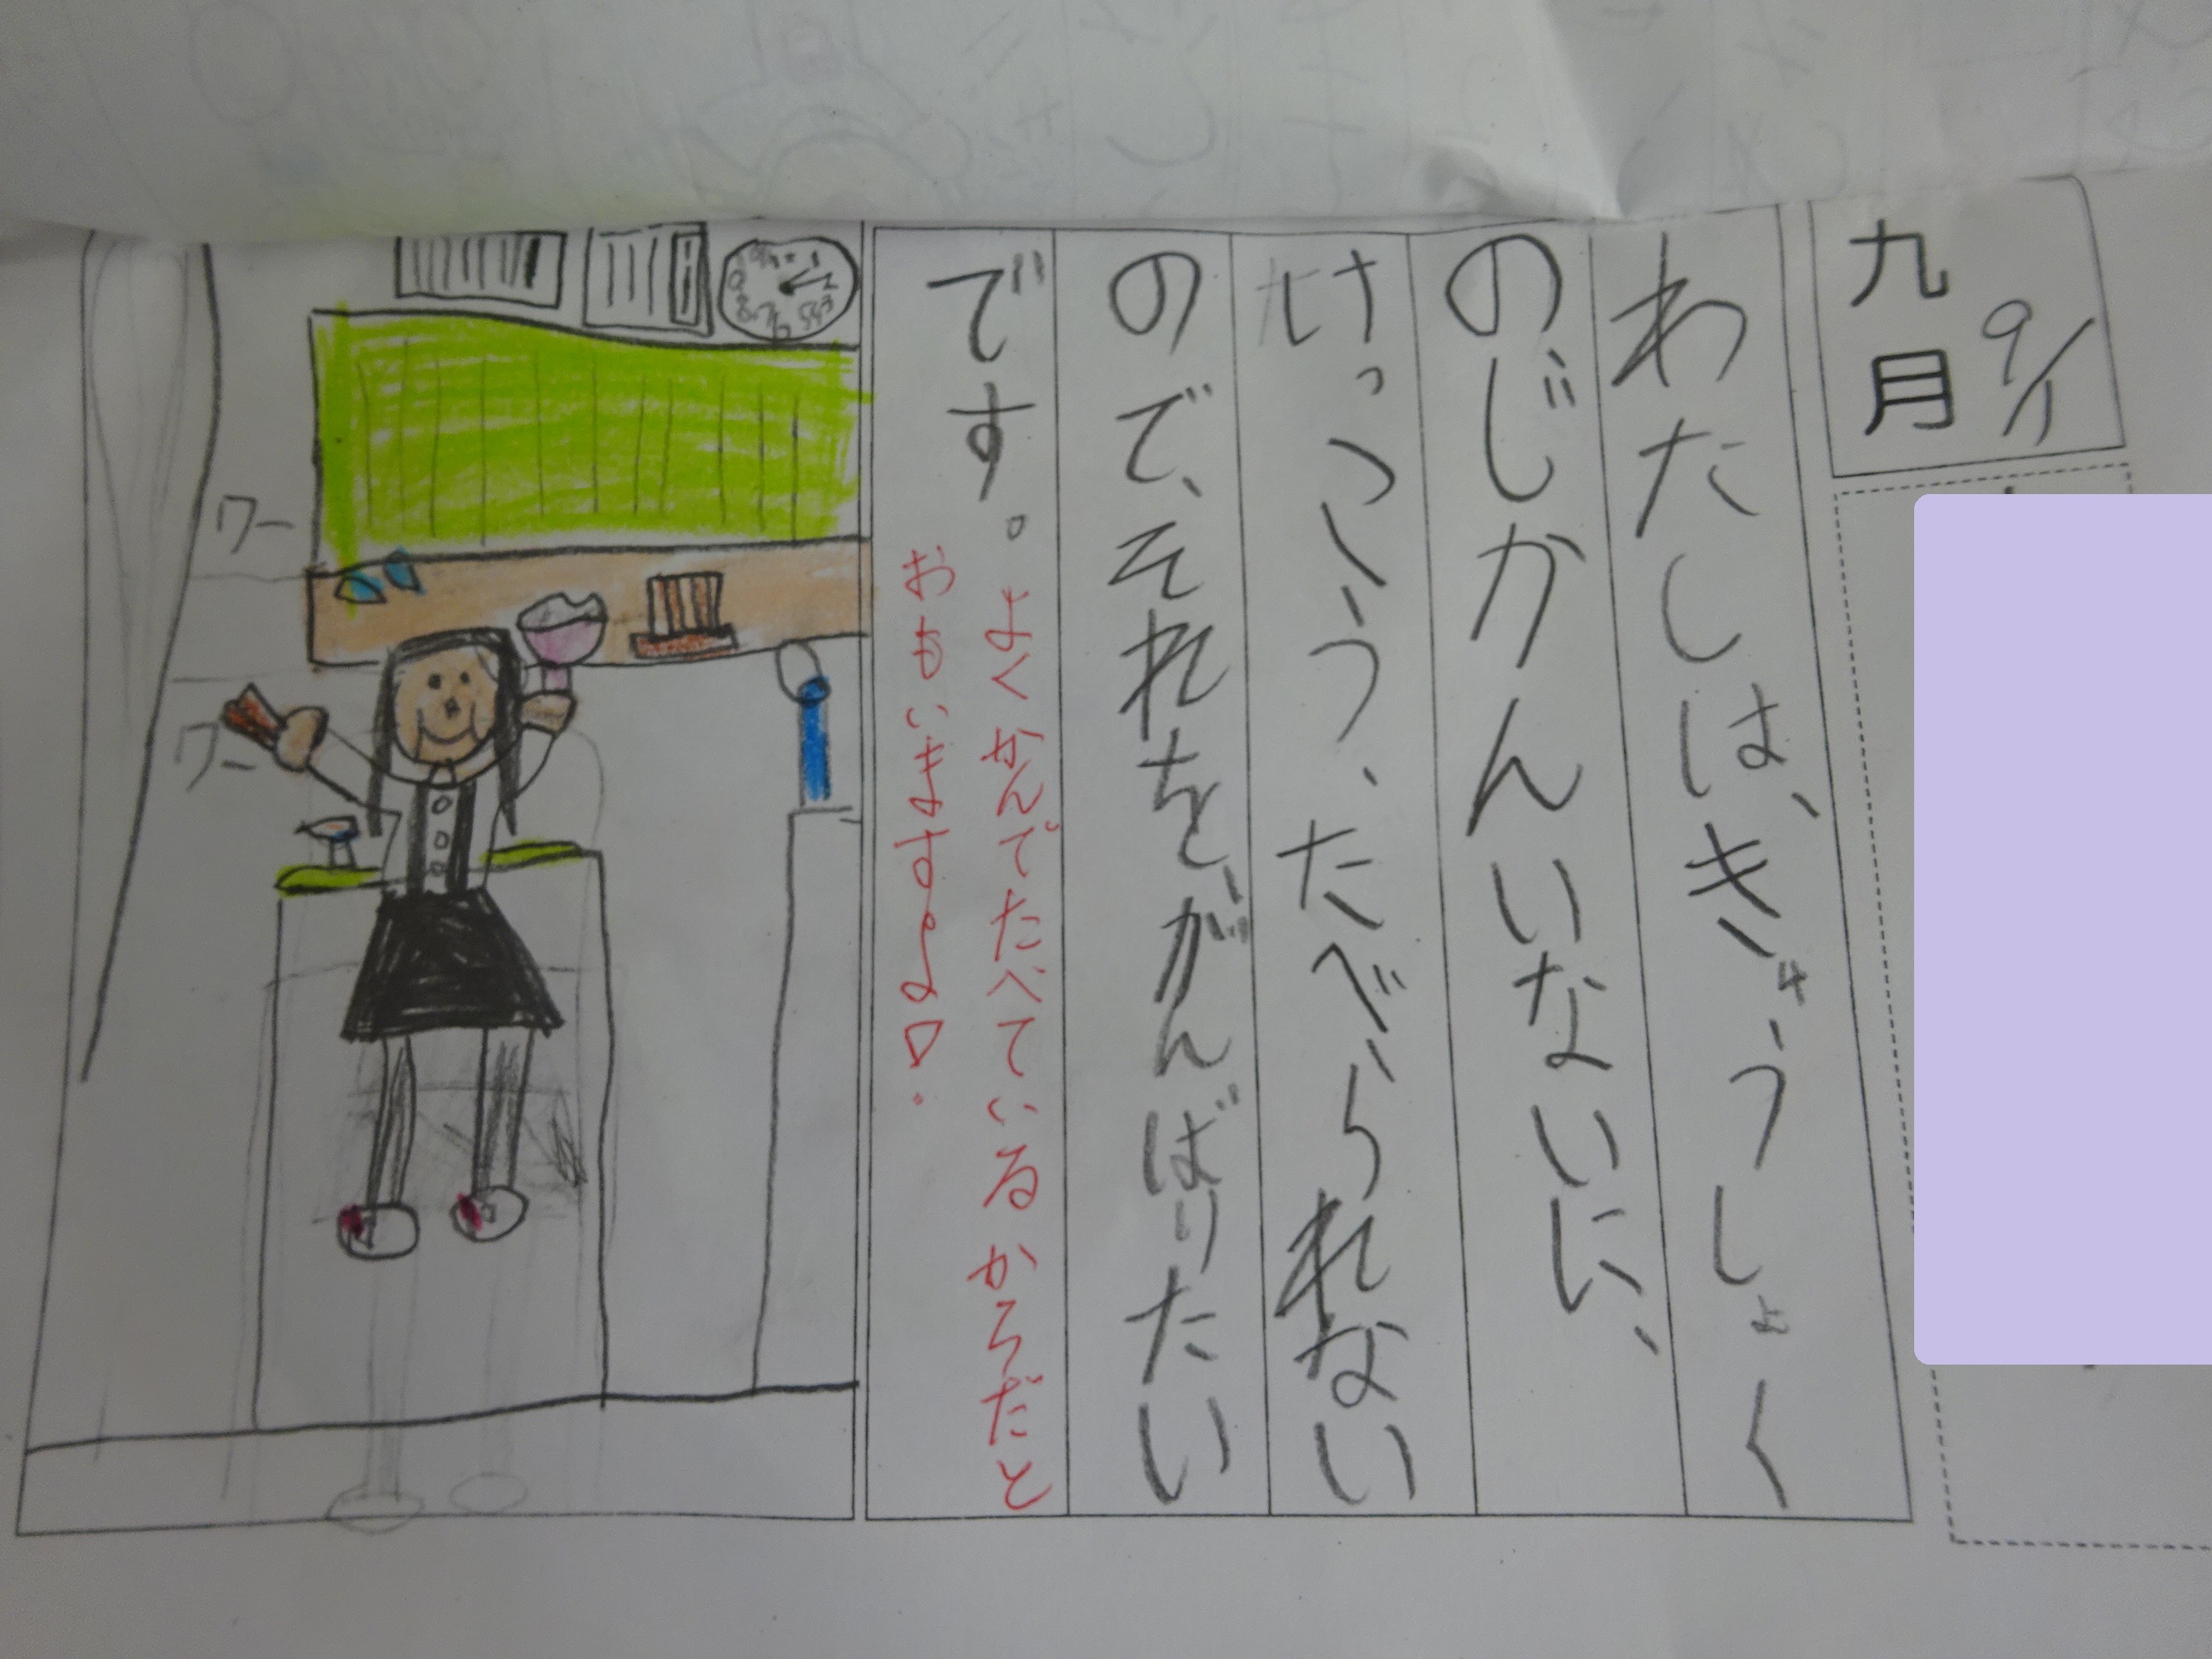 九月
9/1
わたしは、きゅうしょく
のじかんいないに、
けっこう、たべられない
ので、それを、がんばりたい
です。
よくかんでたべているからだと
おもいますよ♡.
ワー
ワー